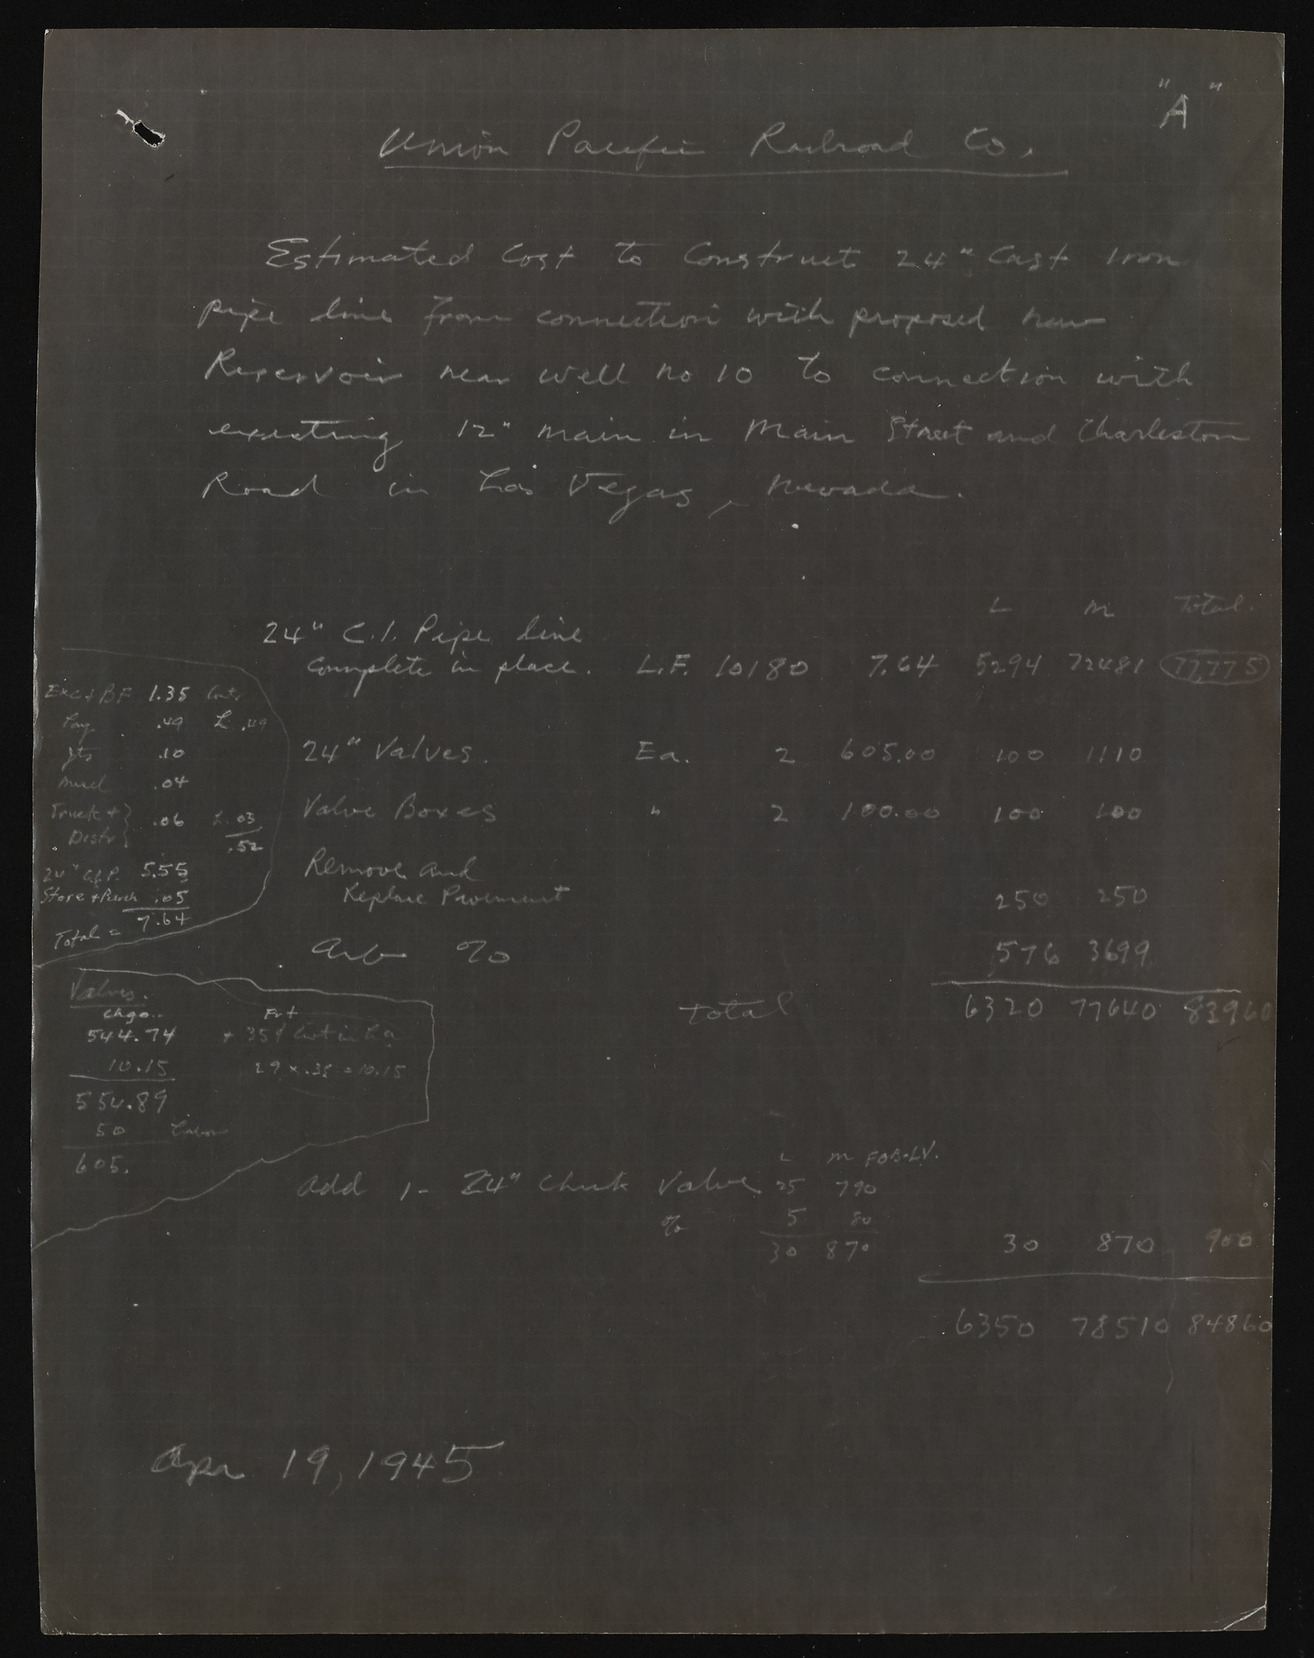 "A"
Union Pacific Railroad Co.
Estimated Cost to Construct 24" Cast Iron
pipe line from connection with proposed new
Reservoir near well no 10 to connection with
existing 12" main in Main Street and Charleston
Road in Las Vegas, Nevada.
L M Total
24" C.I. Pipe line
Complete in place. L.F. 10180 7.64 5294 72481 77,775
24" Valves. Ea. 2 605.00 100 1110
Valve Boxes " 2 100.00 100 100
Remove and
Replace Pavement 250 250
Arb % 576 3699
total 6320 77640 83960
Exc + BF 1.35
Lay .49 L .49
Jts .10
Miscl .04
Truck + } .06 L .03
Distr } .52
24" C.I.P. 5.55
Store + Purch .05
Total = 7.64
Valves.
Chgo. Frt
544.74 + 35¢
10.15 29 x .35 = 10.15
554.89
50 Labor
605.
L M FOB-LV.
Add 1 - 24" Check Valve 25 790
% 5 80
30 870 30 870 900
6350 78510 84860
Apr 19, 1945